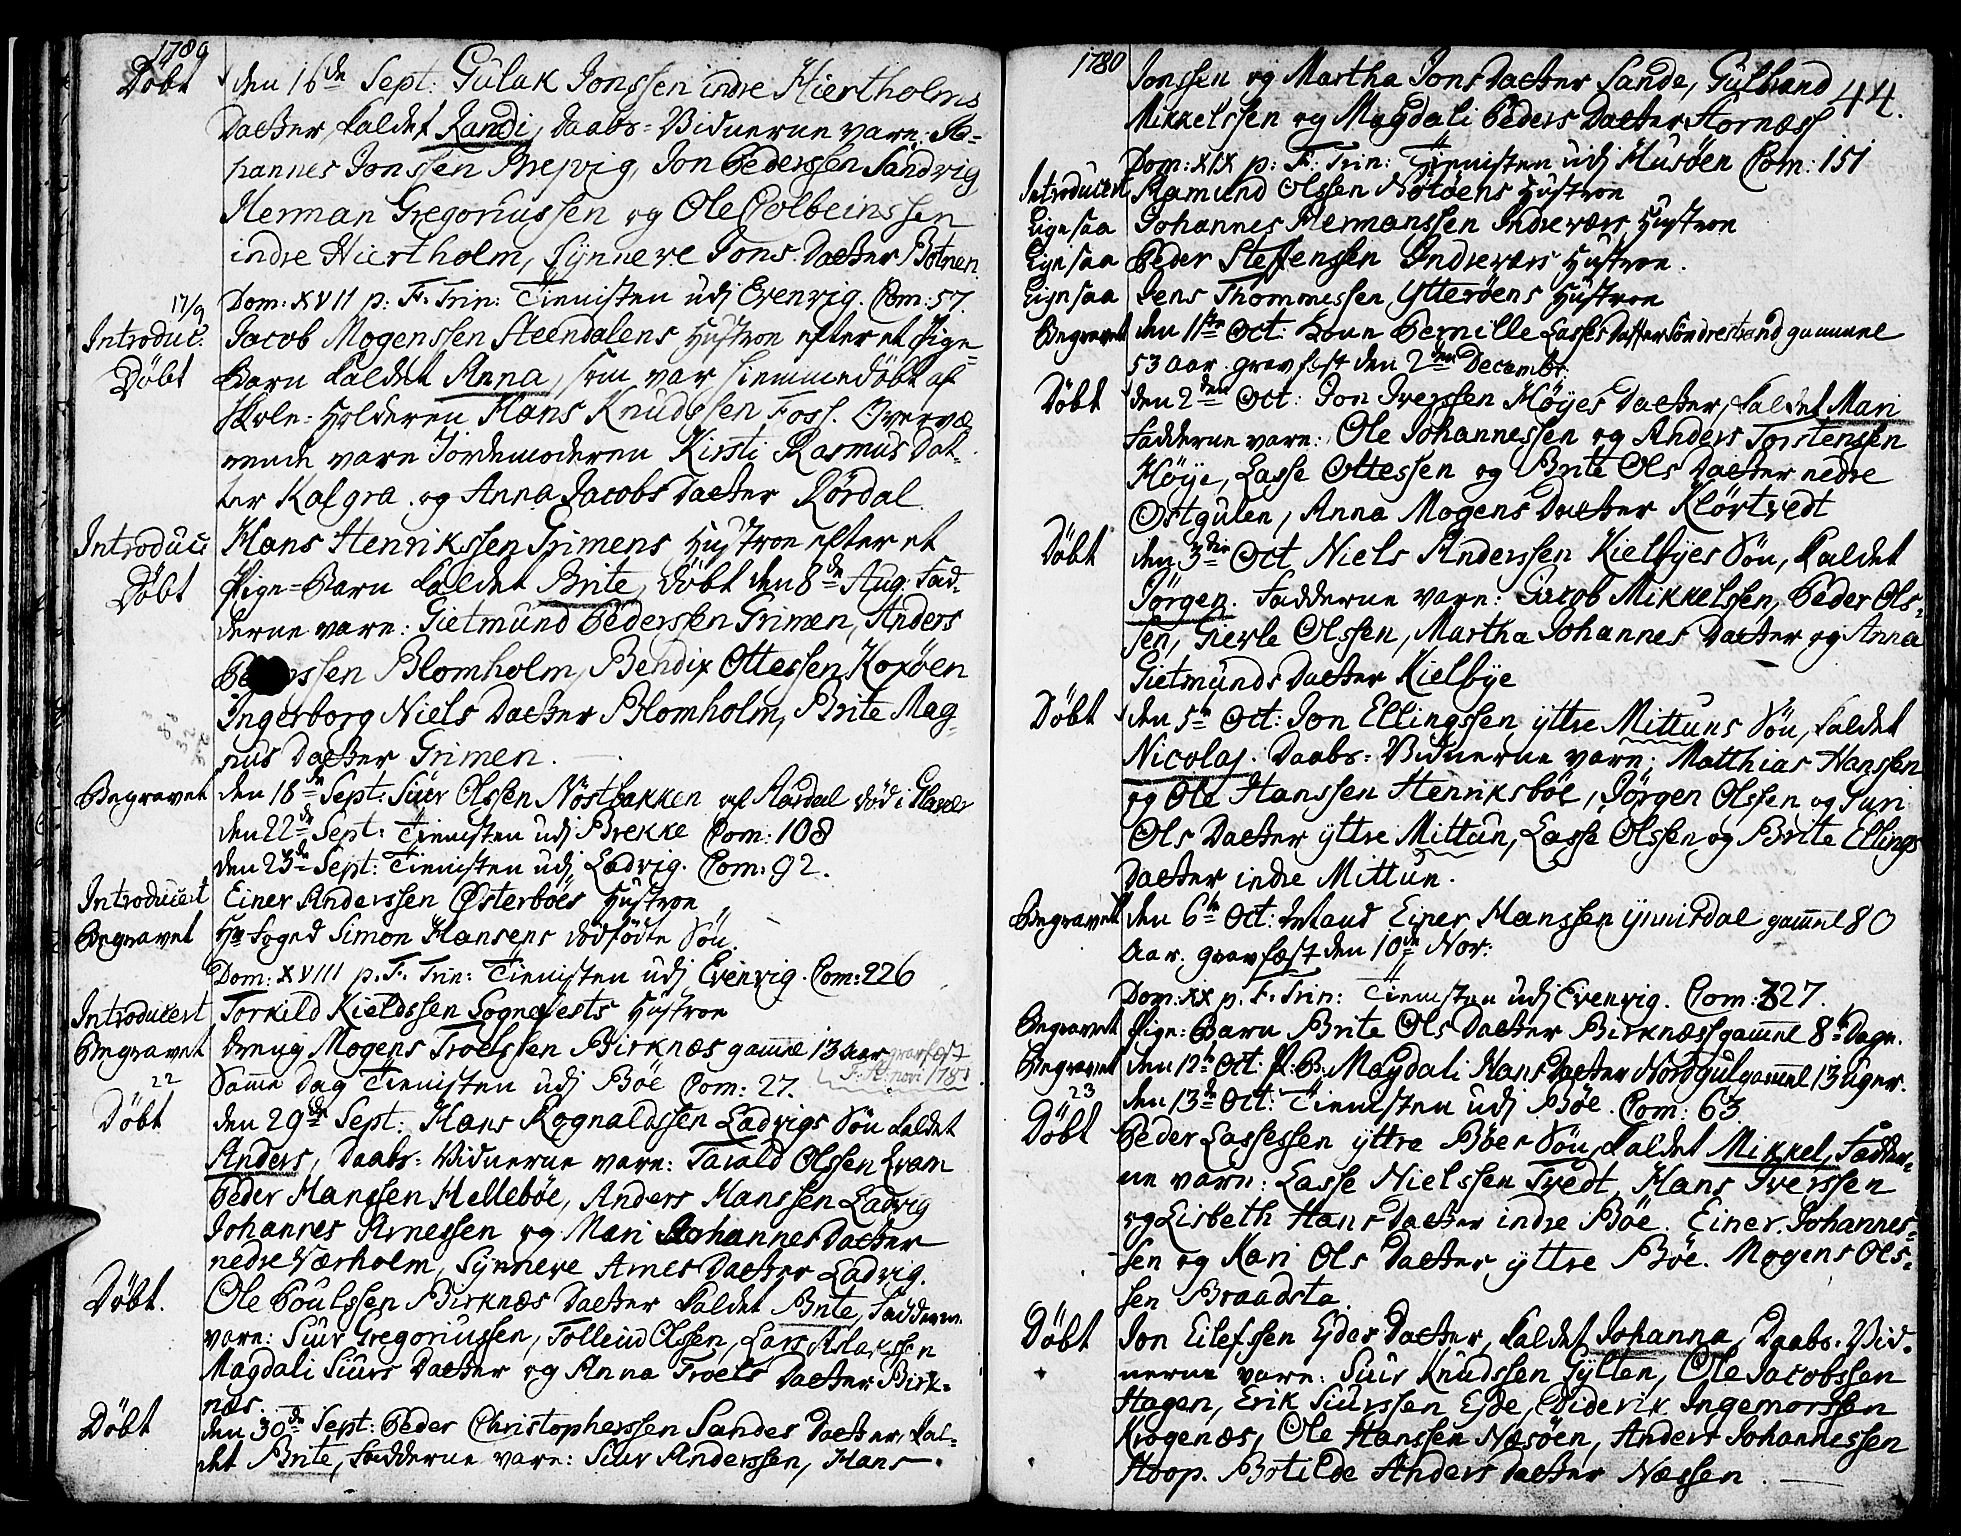 1780
Döbt den 16de Sept: Gulak Jonssen indre Hiertholms
Datter, kaldet Randi, Daabs-Vidnerne vare: Jo-
hannes Jonssen Brejvig, Jon Pederssen Sandvig
Herman Gregoriussen og Ole Colbeinssen
indre Hiertholm, Synneve Jons Datter Botnen
17/9 Dom: XVII p. F. Trin: Tienisten udj Evenvig. Com: 57.
Introduc: Jacob Mogenssen Steendalens Hustroe efter et Pige-
Döbt Barn kaldet Anna, som var hiemmedöbt af
Skole-Holderen Hans Knudssen Foss. Overvæ-
rende vare Jordemoderen Kirsti Rasmus Dat-
ter Kalgra og Anna Jacobs Datter Rördal.
Introduc: Hans Henrikssen Grimens Hustroe efter et
Döbt Pige-Barn kaldet Brite, döbt den 8de Aug. Fad-
derne vare: Gietmund Pederssen Grimen, Anders
Pe ssen Blomholm, Bendix Ottessen Koxöen
Ingerborg Niels Datter Blomholm, Brite Mag-
nus Datter Grimen.
Begravet den 18de Sept: Siur Olssen Nöstbakken af Aardal död i
den 22de Sept: Tienisten udj Brekke Com: 108
den 23de Sept: Tienisten udj Ladvig. Com: 92.
Introducert Einer Anderssen Østerboes Hustroe
Begravet Hr Foged Simon Hansens dödfödte Sön.
Dom: XVIII p. F. Trin: Tienisten udj Evenvig. Com: 226
Introducert Torkild Kieldssen Sognefests Hustroe
Begravet Dreng Mogens Troelssen Birknæs gamel 13 Aar gravfæst
22 Samme Dag Tienisten udj Böe Com: 27. 1781
Döbt den 29de Sept: Hans Rognaldssen Ladvigs Sön kaldet
Anders, Daabs-Vidnerne vare: Tarald Olssen
Peder Hanssen Helleböe, Anders Hanssen Ladvig
Johannes Arnessen og Mari Johannes Datter
nedre Værholm, Synneve Arnes Datter Ladvig.
Döbt. Ole Poulssen Birknæs Datter kaldet Brite, Fadderne
vare: Siur Gregoriussen, Tolleiv Olssen, Lars Aslakssen
Magdali Siurs Datter og Anna Troels Datter Birk-
næs.
Döbt den 30de Sept: Peder Christopherssen Sandes Datter, kal-
det Brite, Fadderne vare: Siur Anderssen, Hans
1780 44.
Jonssen og Martha Jons Datter Sande, Gulbrand
Mikkelssen og Magdali Peders Datter Stornæss
Dom: XIX p. F. Trin: Tienisten udj Husöen Com: 151
Introducert Aamund Olssen Notöens Hustroe
Ligesaa Johannes Hermanssen Indreværs Hustroe
Ligesaa Peder Steffenssen Indreværs Hustroe.
Ligesaa Jens Thommessen Ytteröens Hustroe
Begravet den 1ste Oct: Kone Pernille Lasses Datter Söndrestrand gammel
53 Aar. gravfest den 2den Decembr.
Döbt den 2den Oct: Jon Iverssen Höyes Datter, kaldet Mari
Fadderne vare: Ole Johannessen og Anders Torstenssen
Höye, Lasse Ottessen og Brite Ols Datter nedre
Ostgulen, Anna Mogens Datter Klörtvedt
Döbt den 3die Oct Niels Anderssen Kielbyes Sön, kaldet
Jörgen. Fadderne vare: Jacob Mikkelssen, Peder Ols-
sen, Nerle Olssen, Martha Johannes Datter og Anna
Gietmunds Datter Kielbye
Döbt den 5te Oct: Jon Ellingssen yttre Mittuns Sön, kaldet
Nicolaj. Daabs-Vidnerne vare: Matthias Hanssen
og Ole Hanssen Henriksböe, Jörgen Olssen og Guri
Ols Datter yttre Mittun, Lasse Olssen og Brite Ellings
Datter indre Mittun.
Begravet den 6te Oct: Mand Einer Hanssen ynnisdal gammel 80
Aar. gravfæst den 10de Nov:
Dom: XX p. F. Trin: Tienisten udj Evenvig. Com: 227.
Begravet Pige-Barn Brite Ols Datter Birknæss gammel 8te Dage.
Begravet den 12te Oct. P. B. Magdali Hans Datter Nordgul gammel 13 uger.
23 den 13de Oct: Tienisten udj Böe. Com: 63
Döbt Peder Lassessen yttre Böes Sön, kaldet Mikkel, Fadder-
ne vare: Lasse Nielssen Tvedt, Hans Iverssen
og Lisbeth Hans Datter indre Böe. Einer Johannes-
sen og Kari Ols Datter yttre Böe. Mogens Ols-
sen Braadsta.
Döbt Jon Eilefssen Ejdes Datter, kaldet Johanna, Daabs-Vid-
nerne vare: Siur Knudssen Sylten, Ole Jacobssen
Hagen, Erik Siurssen Ejde, Diderik Ingemorssen
Krogenæs, Ole Hanssen Næsöen, Anders Johannessen
Stoop. Botilde Anders Datter Næssen.